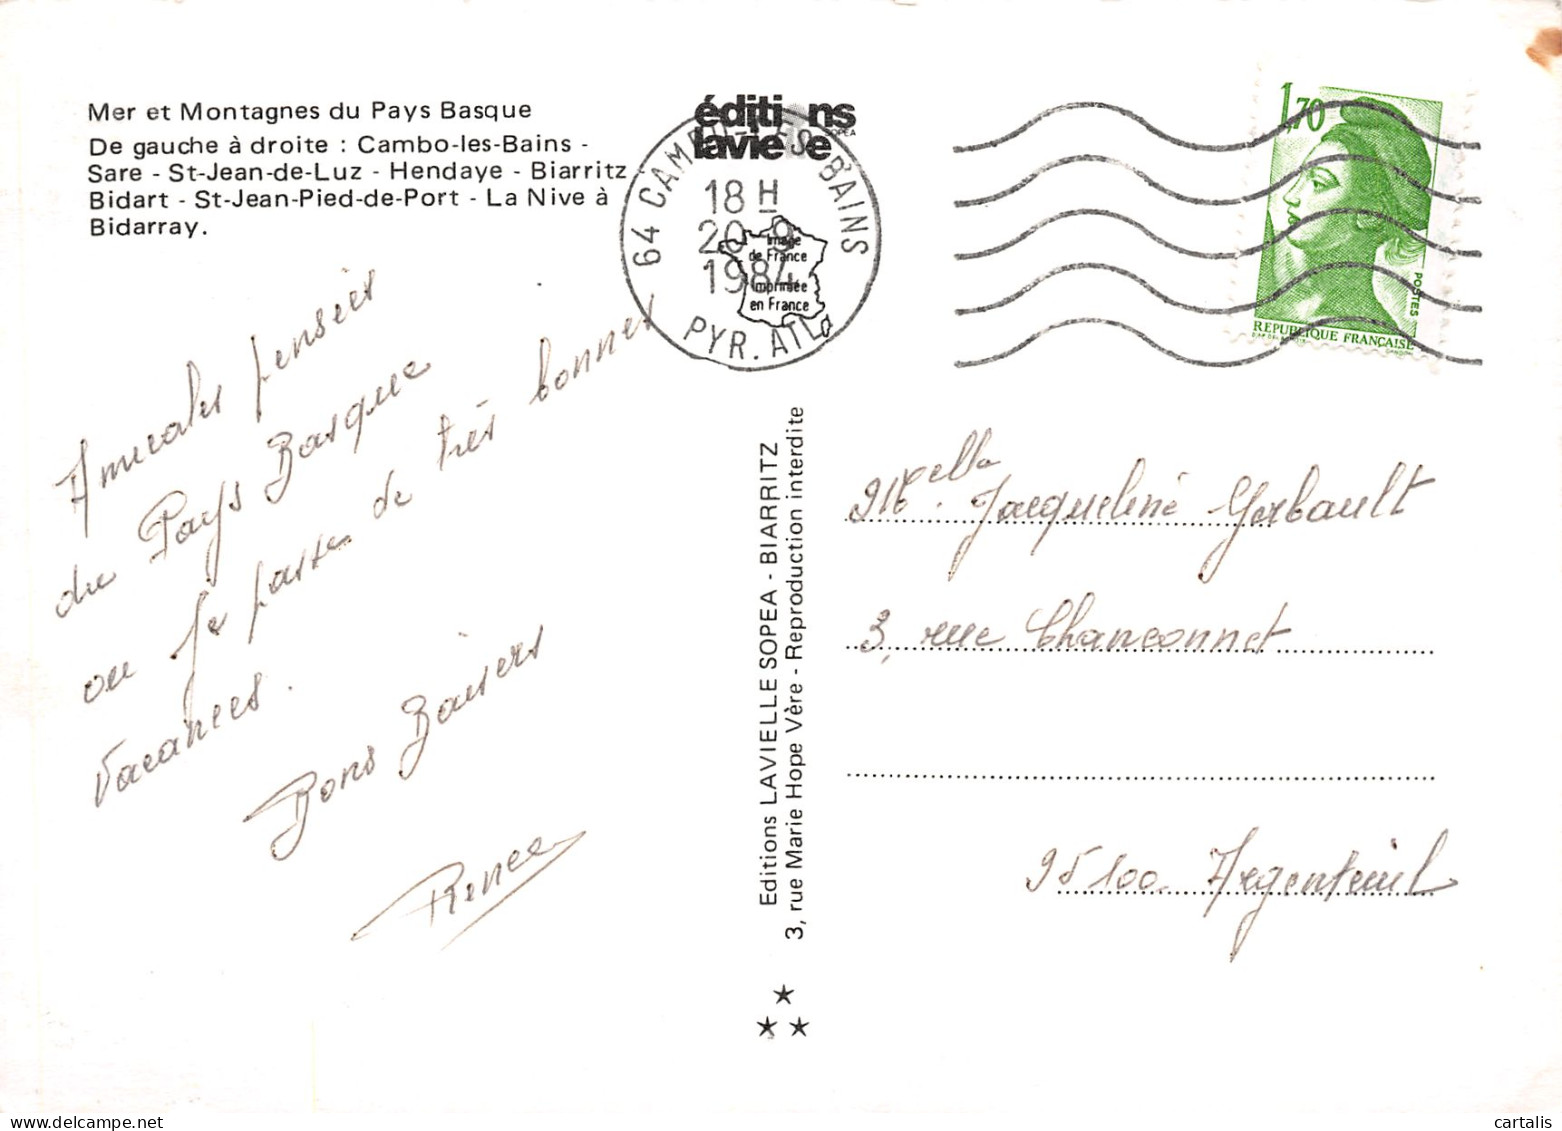 Mer et Montagnes du Pays Basque
De gauche à droite : Cambo-les-Bains -
Sare - St-Jean-de-Luz - Hendaye - Biarritz -
Bidart - St-Jean-Pied-de-Port - La Nive à
Bidarray.
éditions
lavielle
SOPEA
64 CAMBO-LES-BAINS
18 H
20-9
1984
PYR. ATL.
Image
de France
Imprimée
en France
1,70
POSTES
REPUBLIQUE FRANÇAISE
Amicales pensées
du Pays Basque
ou je passe de très bonnes
vacances.
Bons Baisers
Renée
Editions LAVIELLE SOPEA - BIARRITZ
3, rue Marie Hope Vère - Reproduction interdite
Melle Jacqueline Gabault
3, rue Chanconnet
95100 Argenteuil
cartalis